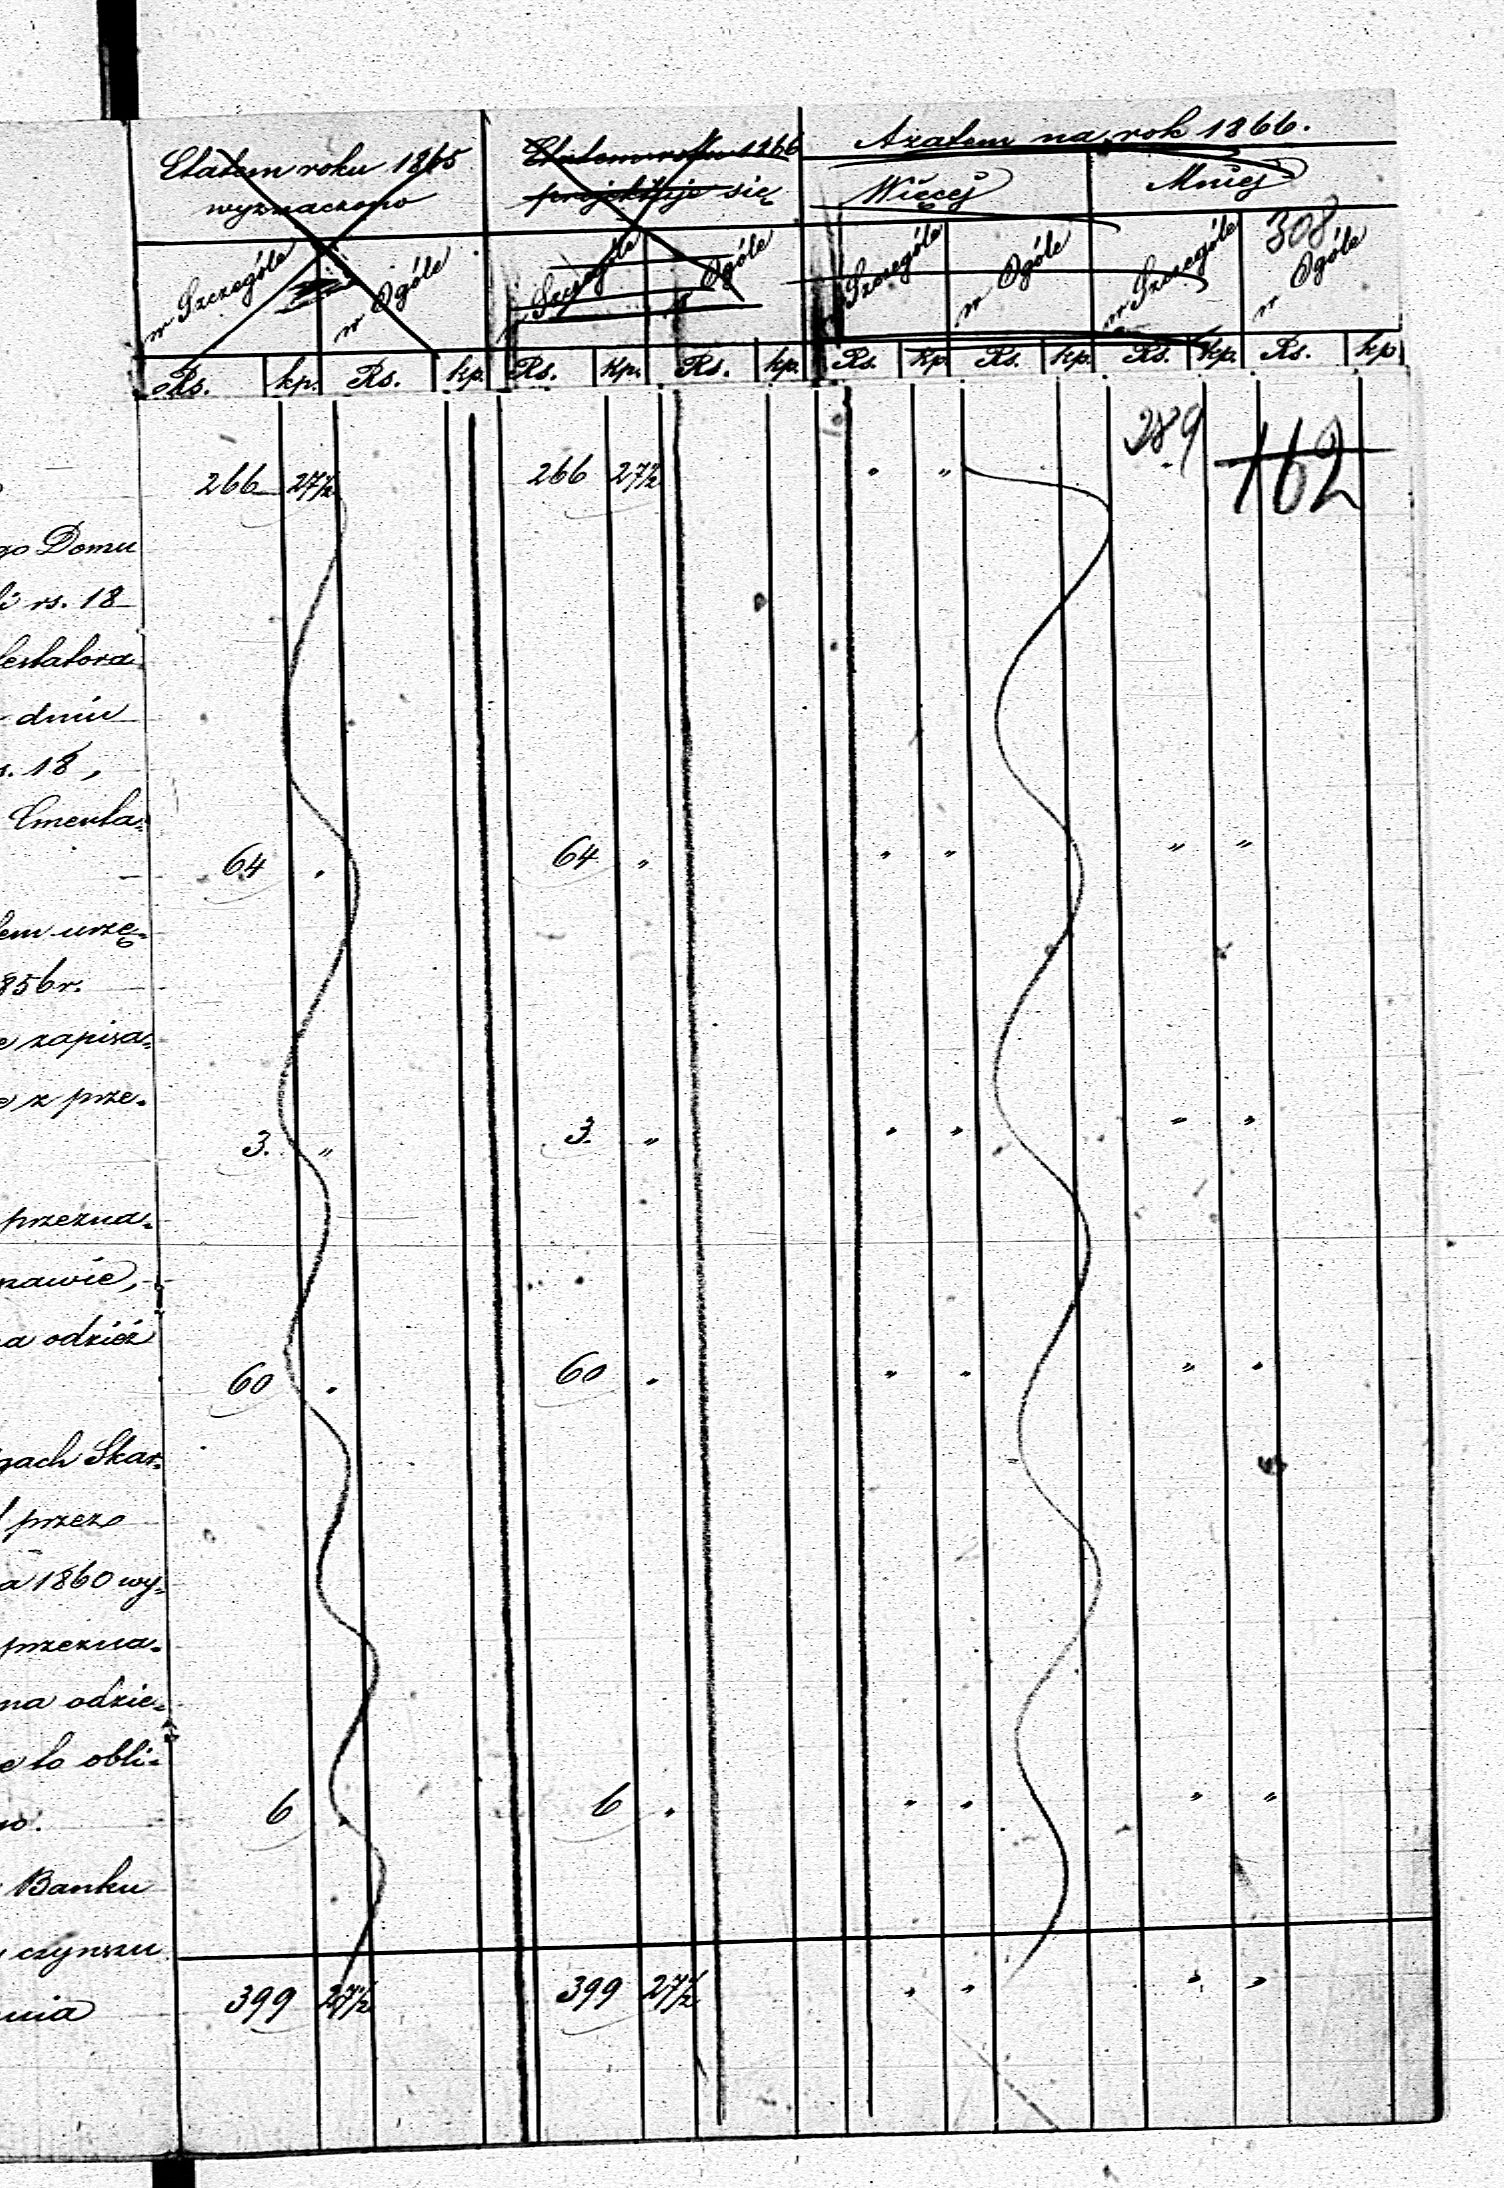 Etatem roku 1865
wyznaczono
Etatem roku 1866
projektuje się
A zatem na rok 1866.
Więcej
Mniej
308
w Szczególe
w Ogóle
w Szczególe
w Ogóle
w Szczególe
w Ogóle
w Szczególe
w Ogóle
Rs. kp. Rs. kp. Rs. kp. Rs. kp. Rs. kp. Rs. kp. Rs. kp. Rs. kp.
289
162
266 27½ 266 27½ " "
go Domu
rs. 18
testatora
dniu
18,
Emeryta-
64 " 64 " " " " "
em urzę-
856 r.
zapisa-
z prze-
3. " 3. " " " " "
przezna-
nawie,
a odzież
60 " 60 " " " " "
gach Skar-
przez
a 1860 wy-
przezna-
na odzie-
to obli-
6 " 6 " " " " "
Banku
czynszu
399 27½ 399 27½ " " " "
nia